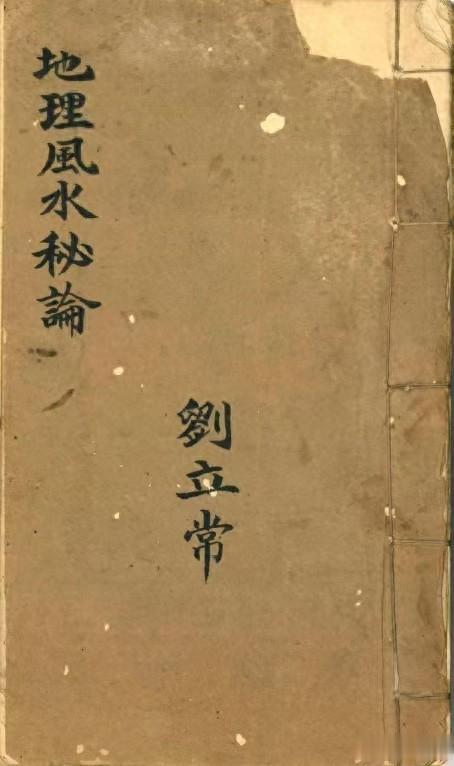 地理風水秘論
劉立常